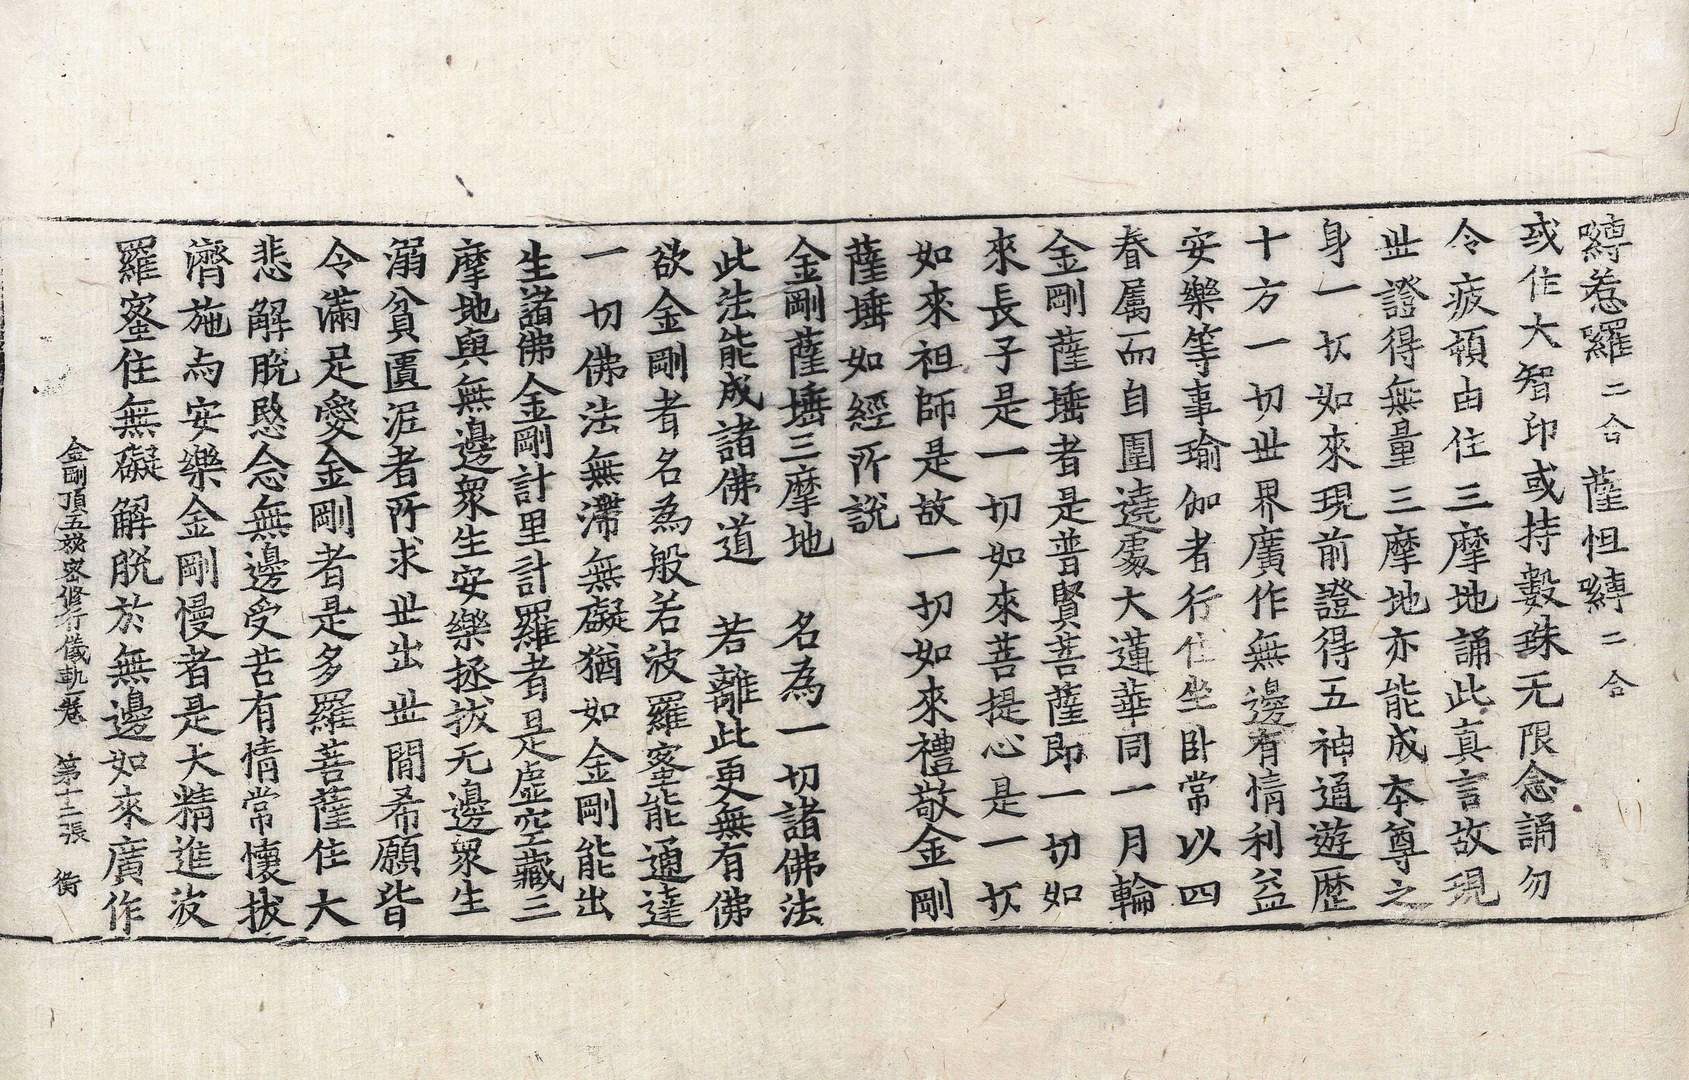 嚩惹囉二合薩怛嚩二合
或作大智印或持數珠无限念誦勿
令疲頓由住三摩地誦此真言故現
世證得無量三摩地亦能成本尊之
身一切如來現前證得五神通遊歷
十方一切世界廣作無邊有情利益
安樂等事瑜伽者行住坐卧常以四
眷屬而自圍遶處大蓮華同一月輪
金剛薩埵者是普賢菩薩即一切如
來長子是一切如來菩提心是一切
如來祖師是故一切如來禮敬金剛
薩埵如經所說
金剛薩埵三摩地　名為一切諸佛法
此法能成諸佛道　若離此更無有佛
欲金剛者名為般若波羅蜜能通達
一切佛法無滯無礙猶如金剛能出
生諸佛金剛計里計羅者是虛空藏三
摩地與無邊衆生安樂拯拔无邊衆生
溺貧匱泥者所求世出世閒希願皆
令滿足愛金剛者是多羅菩薩住大
悲解脫愍念無邊受苦有情常懷拔
濟施与安樂金剛慢者是大精進波
羅蜜住無礙解脫於無邊如來廣作
金剛頂五秘密修行儀軌一卷　第十二張　衡